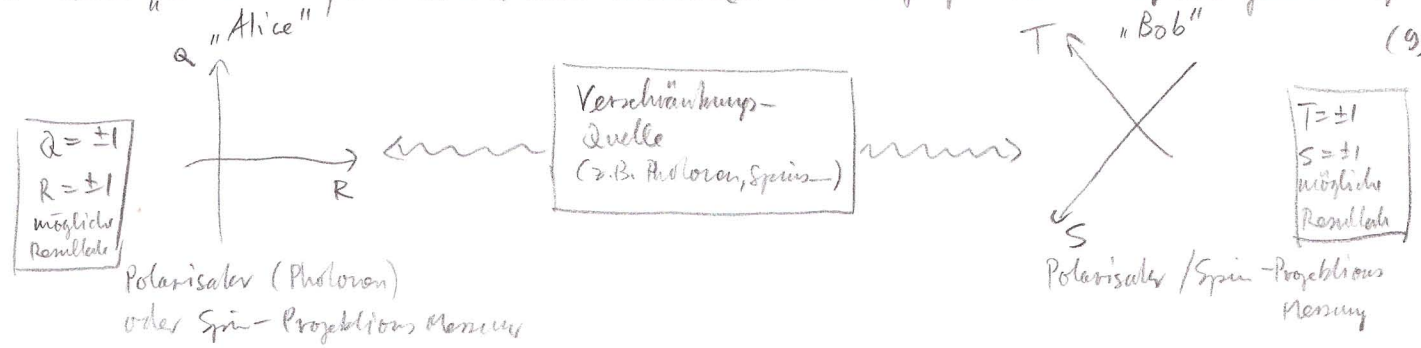 „Alice"
Q
R
Q = ±1
R = ±1
mögliche
Resultate
Polarisator (Photonen)
oder Spin-Projektions Messung
Verschränkungs-
Quelle
(z.B. Photonen, Spins_)
T
„Bob"
S
(9)
T = ±1
S = ±1
mögliche
Resultate
Polarisator / Spin-Projektions
Messung